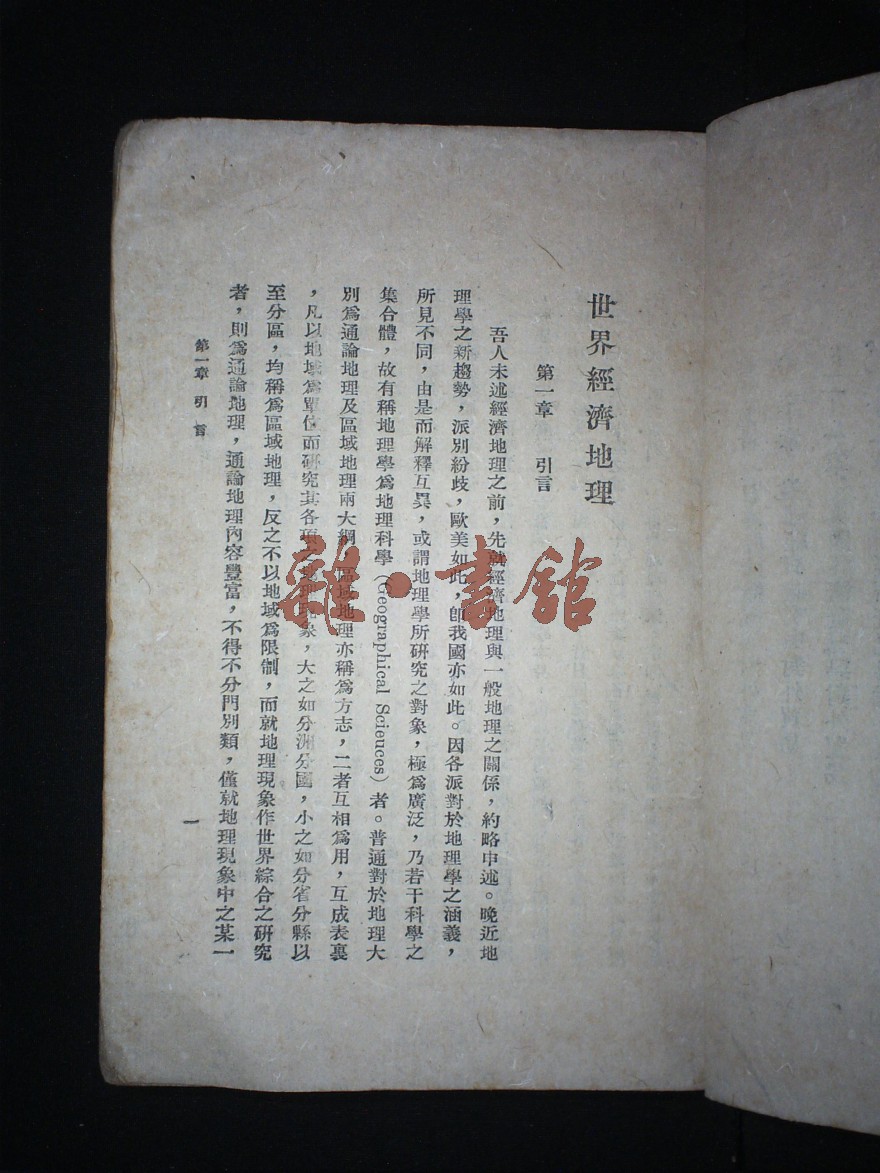 世界經濟地理
第一章 引言
吾人未述經濟地理之前，先就經濟地理與一般地理之關係，約略申述。晚近地
理學之新趨勢，派別紛歧，歐美如此，卽我國亦如此。因各派對於地理學之涵義，
所見不同，由是而解釋互異，或謂地理學所研究之對象，極爲廣泛，乃若干科學之
集合體，故有稱地理學爲地理科學（Geographical Sciences）者。普通對於地理大
別爲通論地理及區域地理兩大綱，區域地理亦稱爲方志，二者互相爲用，互成表裏
，凡以地域爲單位而研究其各項地理現象，大之如分洲分國，小之如分省分縣以
至分區，均稱爲區域地理，反之不以地域爲限制，而就地理現象作世界綜合之研究
者，則爲通論地理，通論地理內容豐富，不得不分門別類，僅就地理現象中之某一
第一章 引言
一
雜·書館